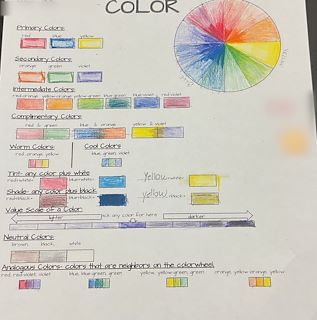 COLOR
Primary Colors:
red blue yellow
Secondary Colors:
orange green violet
Intermediate Colors:
red-orange yellow-orange yellow-green blue-green blue-violet red-violet
Complimentary Colors:
red & green blue & orange yellow & violet
Warm Colors: Cool Colors
red, orange, yellow blue, green, violet
Tint- any color plus white
red+white= blue+white= yellow+white=
Shade- any color plus black
red+black= blue+black= yellow+black=
Value Scale of a Color:
lighter pick any color for here darker
Neutral Colors:
brown black white
Analogous Colors- colors that are neighbors on the colorwheel.
red, red-violet, violet blue, blue-green, green yellow, yellow-green, green orange, yellow-orange, yellow